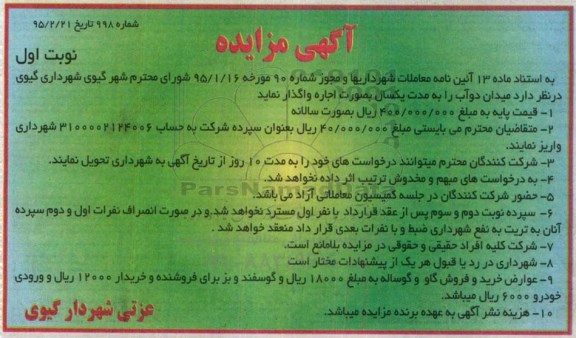 شماره ۹۹۸ تاریخ ۹۵/۲/۲۱
آگهی مزایده
نوبت اول
به استناد ماده ۱۳ آئین نامه معاملات شهرداریها و مجوز شماره ۹۰ مورخه ۹۵/۱/۱۶ شورای محترم شهر گیوی شهرداری گیوی
درنظر دارد میدان دوآب را به مدت یکسال بصورت اجاره واگذار نماید
۱- قیمت پایه به مبلغ ۴۰۰/۰۰۰/۰۰۰ ریال بصورت سالانه
۲- متقاضیان محترم می بایستی مبلغ ۴۰/۰۰۰/۰۰۰ ریال بعنوان سپرده شرکت به حساب ۳۱۰۰۰۰۲۱۲۴۰۰۶ شهرداری
واریز نمایند.
۳- شرکت کنندگان محترم میتوانند درخواست های خود را به مدت ۱۰ روز از تاریخ آگهی به شهرداری تحویل نمایند.
۴- به درخواست های مبهم و مخدوش ترتیب اثر داده نخواهد شد.
۵- حضور شرکت کنندگان در جلسه کمیسیون معاملاتی آزاد می باشد.
۶- سپرده نوبت دوم و سوم پس از عقد قرارداد با نفر اول مسترد نخواهد شد.و در صورت انصراف نفرات اول و دوم سپرده
آنان به تربت به نفع شهرداری ضبط و با نفرات بعدی قرار داد منعقد خواهد شد .
۷- شرکت کلیه افراد حقیقی و حقوقی در مزایده بلامانع است.
۸- شهرداری در رد یا قبول هر یک از پیشنهادات مختار است
۹- عوارض خرید و فروش گاو و گوساله به مبلغ ۱۸۰۰۰ ریال و گوسفند و بز برای فروشنده و خریدار ۱۲۰۰۰ ریال و ورودی
خودرو ۶۰۰۰ ریال میباشد.
۱۰- هزینه نشر آگهی به عهده برنده مزایده میباشد.
عزتی شهردار گیوی